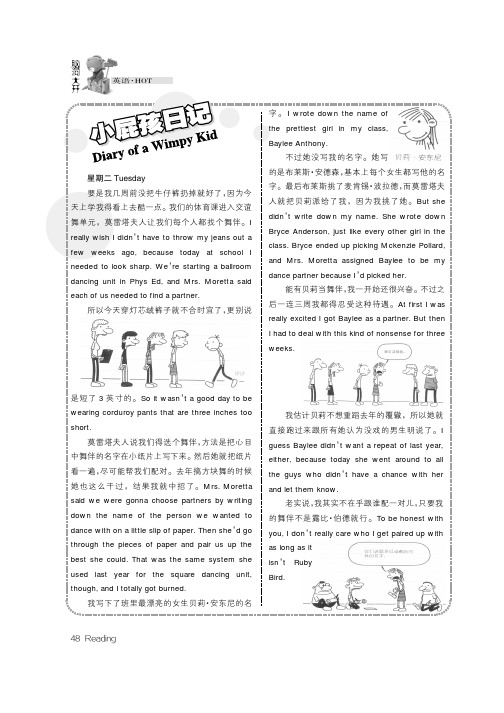 脑洞大开
英语·HOT
小屁孩日记
Diary of a Wimpy Kid
星期二 Tuesday
要是我几周前没把牛仔裤扔掉就好了，因为今
天上学我得看上去酷一点。我们的体育课进入交谊
舞单元，莫雷塔夫人让我们每个人都找个舞伴。I
really wish I didn't have to throw my jeans out a
few weeks ago, because today at school I
needed to look sharp. We're starting a ballroom
dancing unit in Phys Ed, and Mrs. Moretta said
each of us needed to find a partner.
所以今天穿灯芯绒裤子就不合时宜了，更别说
是短了 3 英寸的。So it wasn't a good day to be
wearing corduroy pants that are three inches too
short.
莫雷塔夫人说我们得选个舞伴，方法是把心目
中舞伴的名字在小纸片上写下来。然后她就把纸片
看一遍，尽可能帮我们配对。去年搞方块舞的时候
她也这么干过，结果我就中招了。Mrs. Moretta
said we were gonna choose partners by writing
down the name of the person we wanted to
dance with on a little slip of paper. Then she'd go
through the pieces of paper and pair us up the
best she could. That was the same system she
used last year for the square dancing unit,
though, and I totally got burned.
我写下了班里最漂亮的女生贝莉·安东尼的名
字。I wrote down the name of
the prettiest girl in my class,
Baylee Anthony.
贝莉·安东尼
不过她没写我的名字。她写
的是布莱斯·安德森，基本上每个女生都写他的名
字。最后布莱斯挑了麦肯锡·波拉德，而莫雷塔夫
人就把贝莉派给了我，因为我挑了她。But she
didn't write down my name. She wrote down
Bryce Anderson, just like every other girl in the
class. Bryce ended up picking Mckenzie Pollard,
and Mrs. Moretta assigned Baylee to be my
dance partner because I'd picked her.
能有贝莉当舞伴，我一开始还很兴奋。不过之
后一连三周我都得忍受这种待遇。At first I was
really excited I got Baylee as a partner. But then
I had to deal with this kind of nonsense for three
weeks.
我估计贝莉不想重蹈去年的覆辙，所以她就
直接跑过来跟所有她认为没戏的男生明说了。I
guess Baylee didn't want a repeat of last year,
either, because today she went around to all
the guys who didn't have a chance with her
and let them know.
老实说，我其实不在乎跟谁配一对儿，只要我
的舞伴不是露比·伯德就行。To be honest with
you, I don't really care who I get paired up with
as long as it
isn't Ruby
Bird.
48 Reading